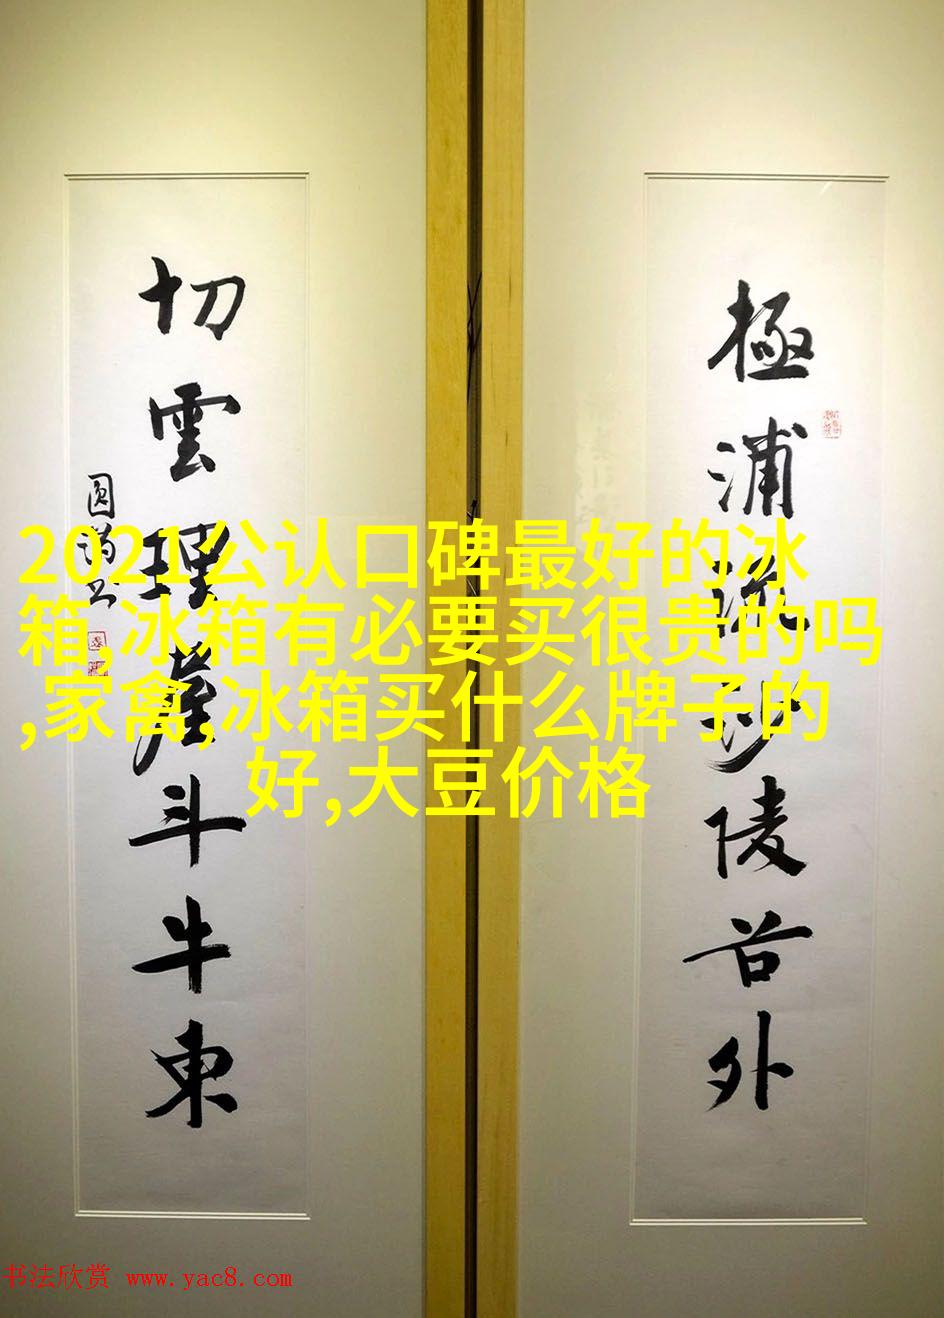 極浦流沙陵谷外
切雲理崖斗牛東
2021公认口碑最好的冰
箱,冰箱有必要买很贵的吗
,家禽,冰箱买什么牌子的
好,大豆价格
书法欣赏 www.yac8.com